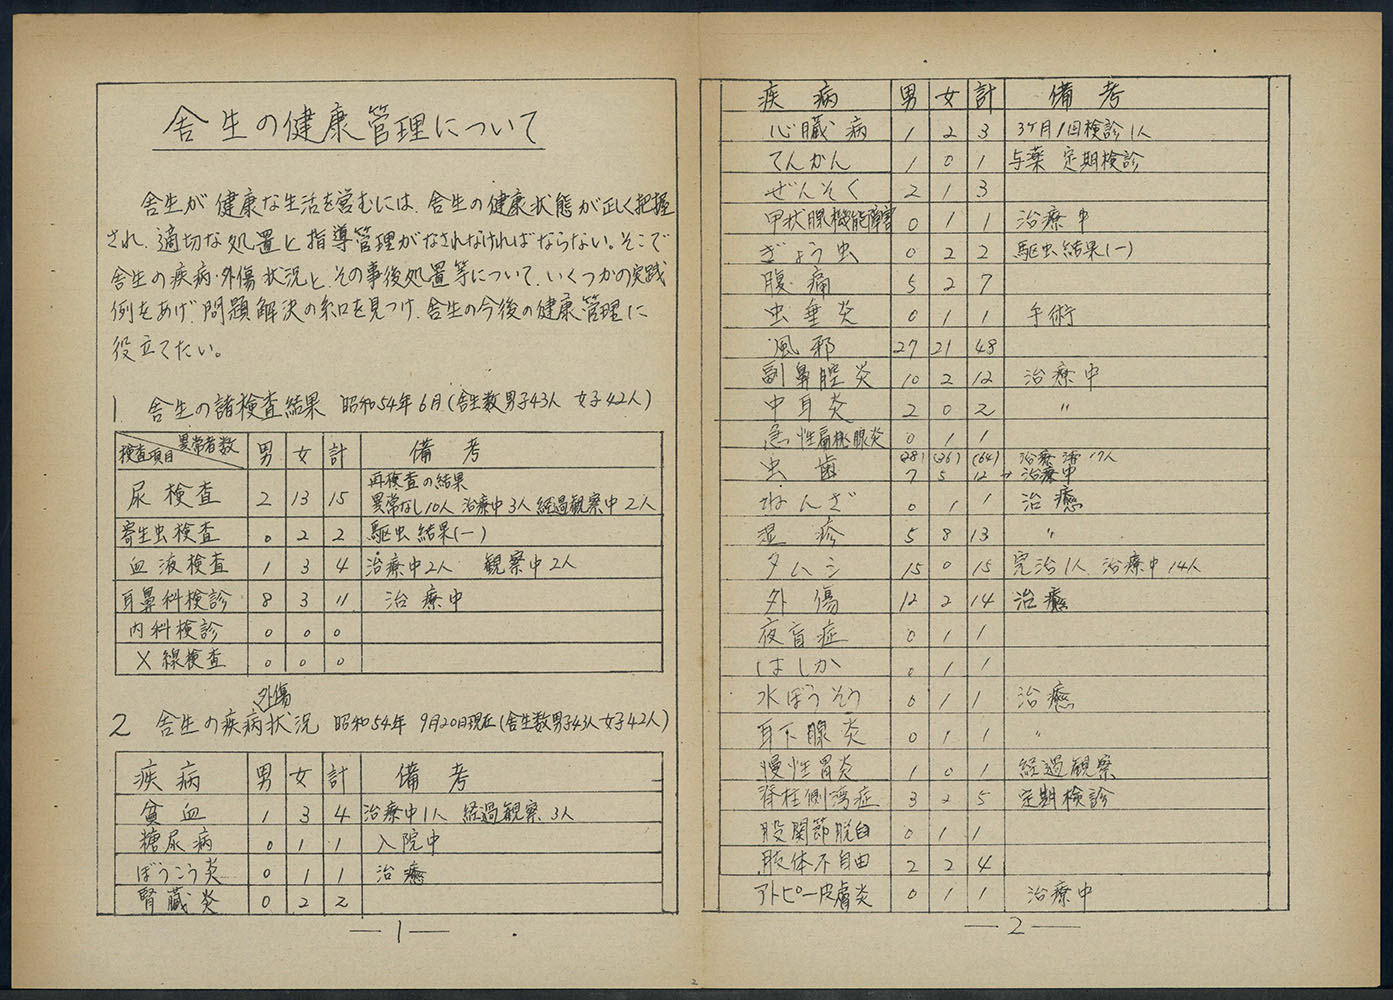 舎生の健康管理について
舎生が健康な生活を営むには、舎生の健康状態が正しく把握
され、適切な処置と指導管理がなされなければならない。そこで
舎生の疾病・外傷状況と、その事後処置等について、いくつかの実践
例をあげ、問題解決の糸口を見つけ、舎生の今後の健康管理に
役立てたい。
1 舎生の諸検査結果 昭和54年6月(舎生数男子43人 女子42人)
検査項目 異常者数 男 女 計 備考
再検査の結果
尿検査 2 13 15 異常なし10人 治療中3人 経過観察中2人
寄生虫検査 0 2 2 駆虫結果(-)
血液検査 1 3 4 治療中2人 観察中2人
耳鼻科検診 8 3 11 治療中
内科検診 0 0 0
X線検査 0 0 0
外傷
2 舎生の疾病状況 昭和54年 9月20日現在(舎生数男子43人女子42人)
疾病 男 女 計 備考
貧血 1 3 4 治療中1人 経過観察3人
糖尿病 0 1 1 入院中
ぼうこう炎 0 1 1 治癒
腎臓炎 0 2 2
—1—
疾病 男 女 計 備考
心臓病 1 2 3 3ヶ月1回検診1人
てんかん 1 0 1 与薬 定期検診
ぜんそく 2 1 3
甲状腺機能障害 0 1 1 治療中
ぎょう虫 0 2 2 駆虫結果(-)
腹痛 5 2 7
虫垂炎 0 1 1 手術
風邪 27 21 48
副鼻腔炎 10 2 12 治療中
中耳炎 2 0 2 〃
急性扁桃腺炎 0 1 1
虫歯 (28) (36) (64) 治療済17人
7 5 12 → 治療中
ねんざ 0 1 1 治癒
湿疹 5 8 13 〃
タムシ 15 0 15 完治1人 治療中14人
外傷 12 2 14 治癒
夜盲症 0 1 1
はしか 0 1 1
水ぼうそう 0 1 1 治癒
耳下腺炎 0 1 1 〃
慢性胃炎 1 0 1 経過観察
脊柱側湾症 3 2 5 定期検診
股関節脱臼 0 1 1
肢体不自由 2 2 4
アトピー皮膚炎 0 1 1 治療中
—2—
2